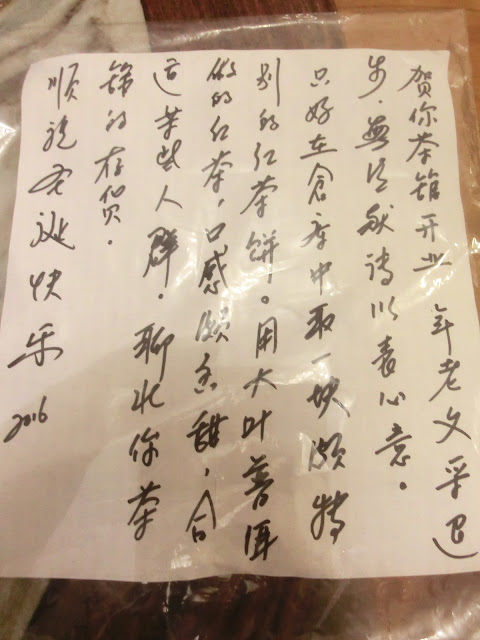 贺你茶馆开业 年老文采退
步.無法献诗以表心意。
只好在倉库中取一块颇特
别的红茶饼。用大叶普洱
做的红茶,口感颇香甜,合
适某些人群.聊壮你茶
馆的存货.
顺祝圣诞快乐
2016